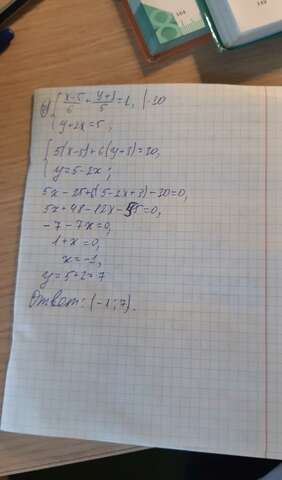 { x-5/6 + y+3/5 = 1, |·30
{ y+2x=5;
{ 5(x-5)+6(y+3)=30,
{ y=5-2x;
5x-25+6(5-2x+3)-30=0,
5x+48-12x-55=0,
-7-7x=0,
1+x=0,
x=-1,
y=5+2=7
Ответ: (-1;7).